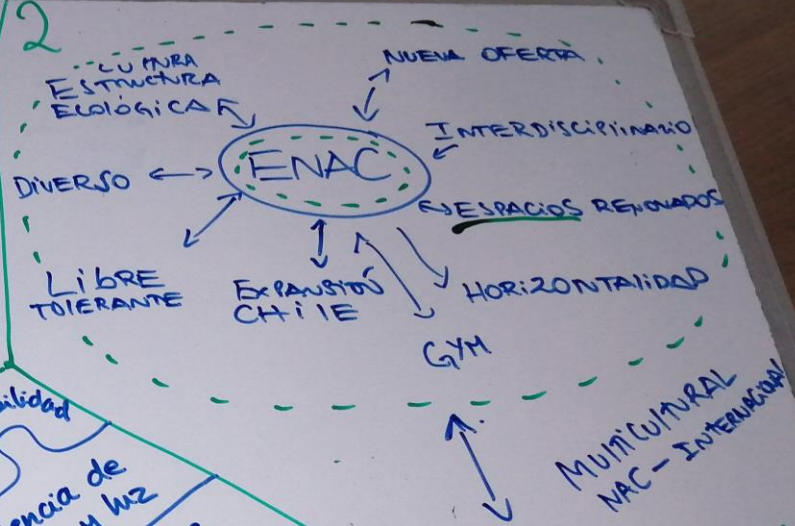 2
CULTURA
ESTRUCTURA
ECOLÓGICA
NUEVA OFERTA
INTERDISCIPLINARIO
ENAC
DIVERSO
ESPACIOS RENOVADOS
LIBRE
TOLERANTE
EXPANSIÓN
CHILE
HORIZONTALIDAD
GYM
MULTICULTURAL
NAC - INTERNACIONAL
ilidad
encia de
y luz